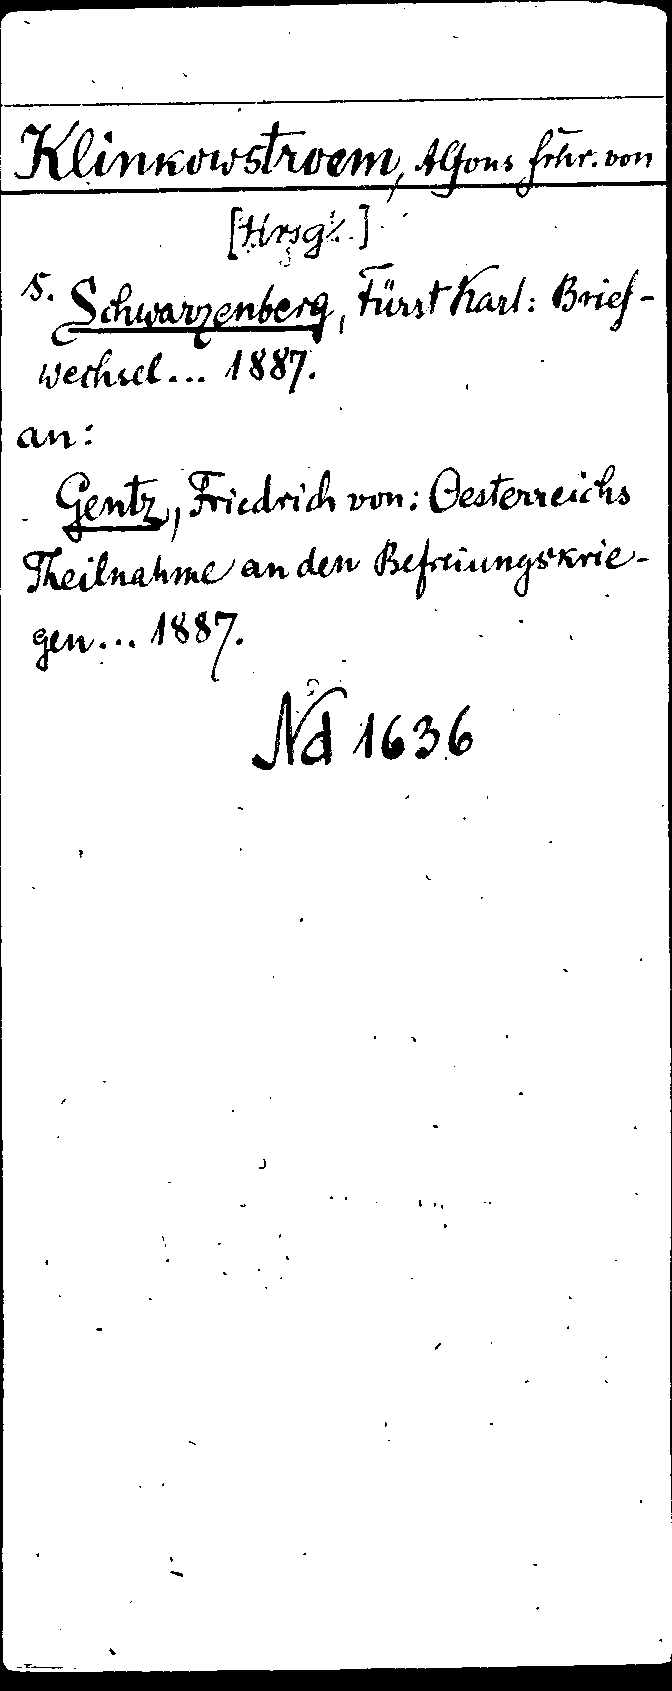 Klinkowstroem, Alfons Frhr. von
[Hrsg.]
s. Schwarzenberg, Fürst Karl: Brief-
wechsel... 1887.
an:
Gentz, Friedrich von: Oesterreichs
Theilnahme an den Befreiungskrie-
gen... 1887.
Nd 1636